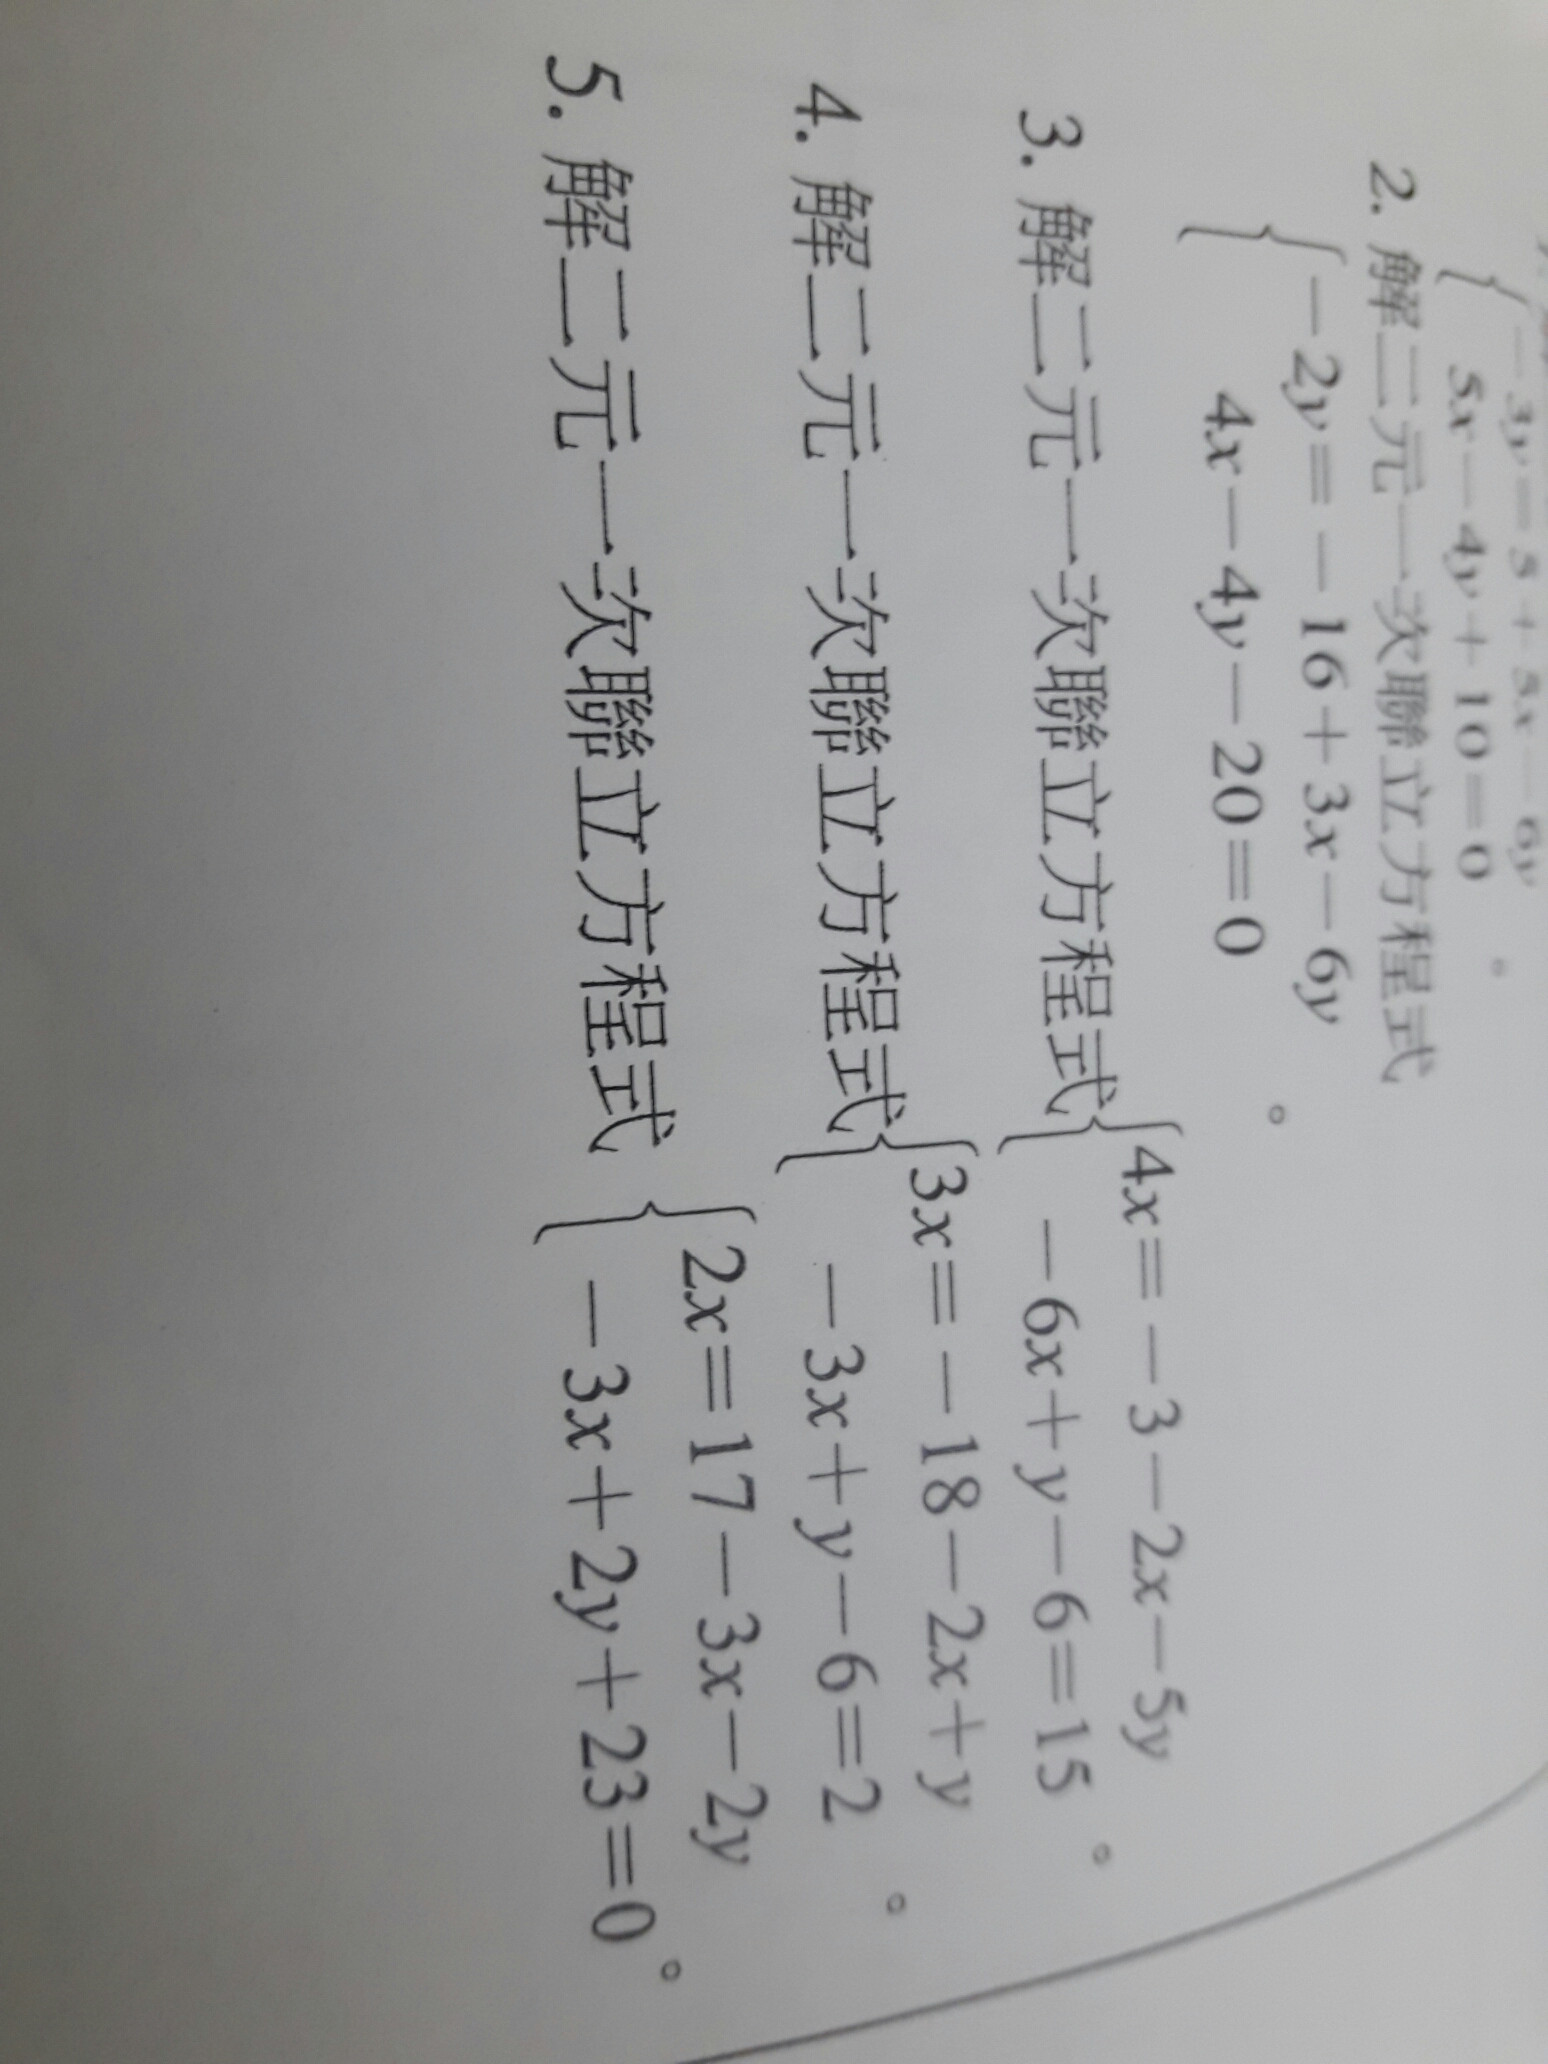 −3y=5+5x−6y
5x−4y+10=0。
2. 解二元一次聯立方程式
−2y=−16+3x−6y
4x−4y−20=0。
3. 解二元一次聯立方程式
4x=−3−2x−5y
−6x+y−6=15。
4. 解二元一次聯立方程式
3x=−18−2x+y
−3x+y−6=2。
5. 解二元一次聯立方程式
2x=17−3x−2y
−3x+2y+23=0。